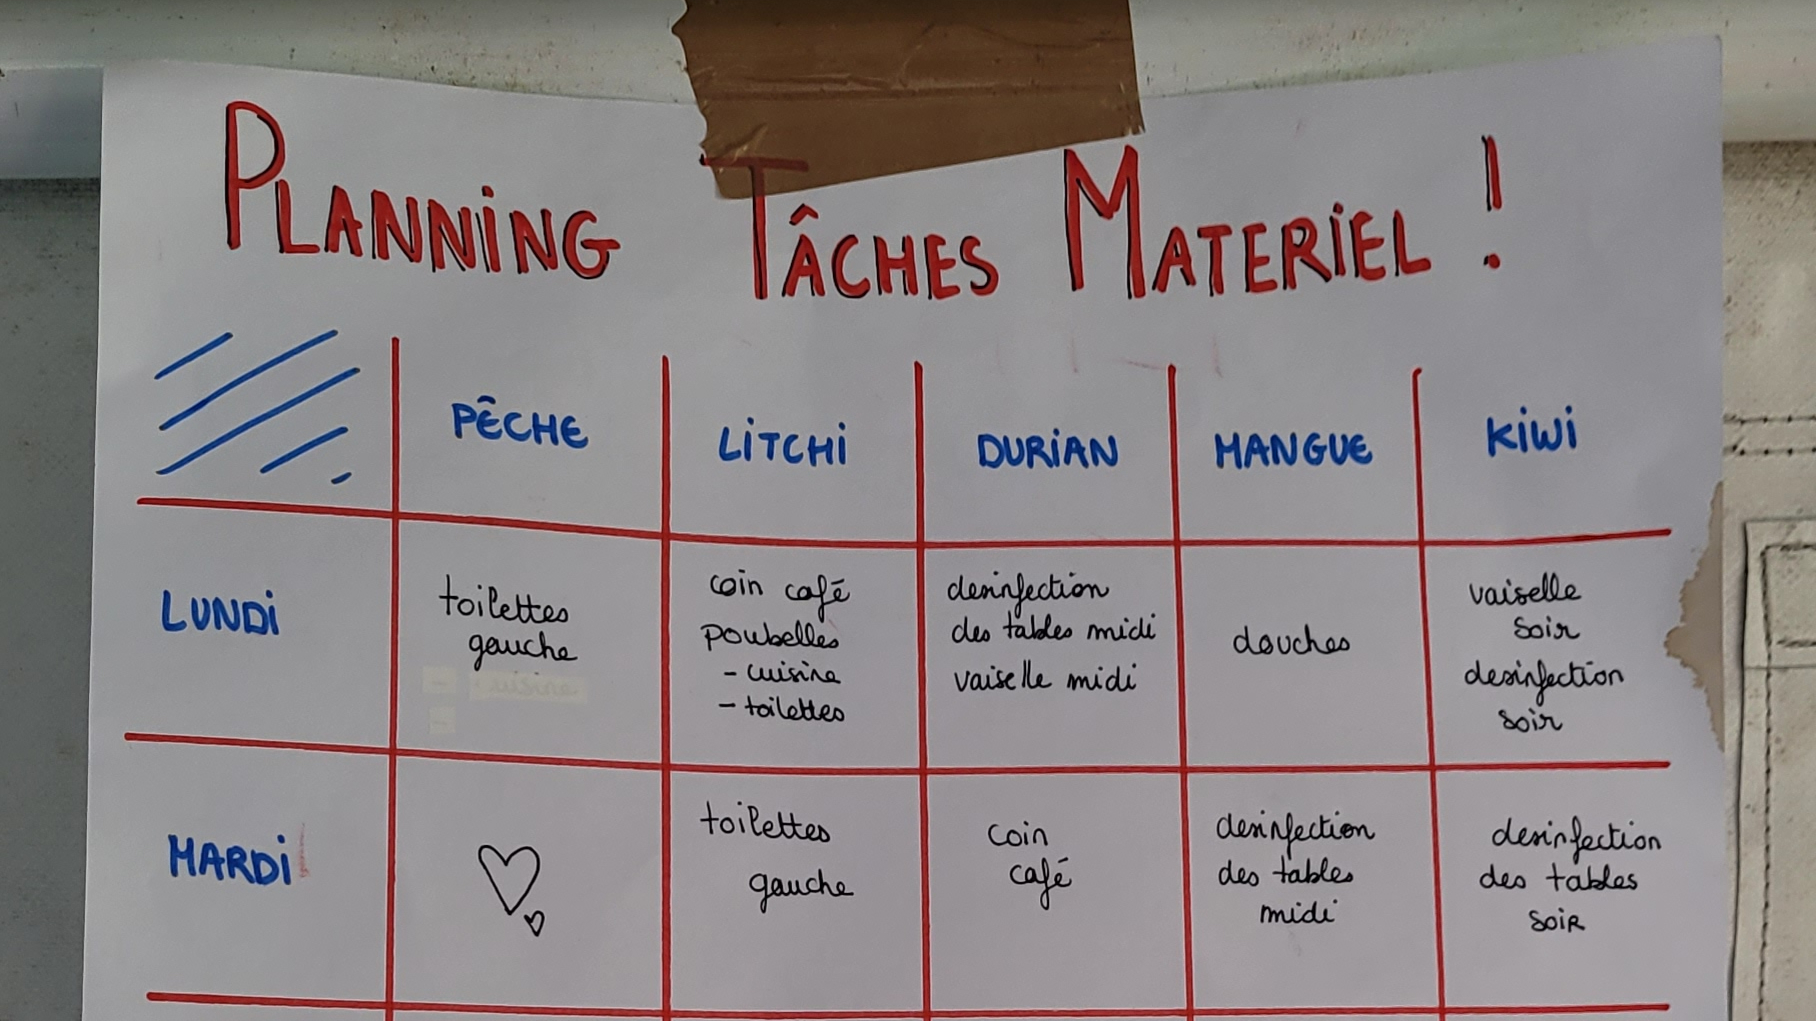 PLANNING TÂCHES MATERIEL !
PÊCHE
LITCHI
DURIAN
MANGUE
KIWI
LUNDI
toilettes
gauche
- cuisine
-
coin café
poubelles
- cuisine
- toilettes
desinfection
des tables midi
vaiselle midi
douches
vaiselle
soir
desinfection
soir
MARDI
toilettes
gauche
coin
café
desinfection
des tables
midi
desinfection
des tables
soir